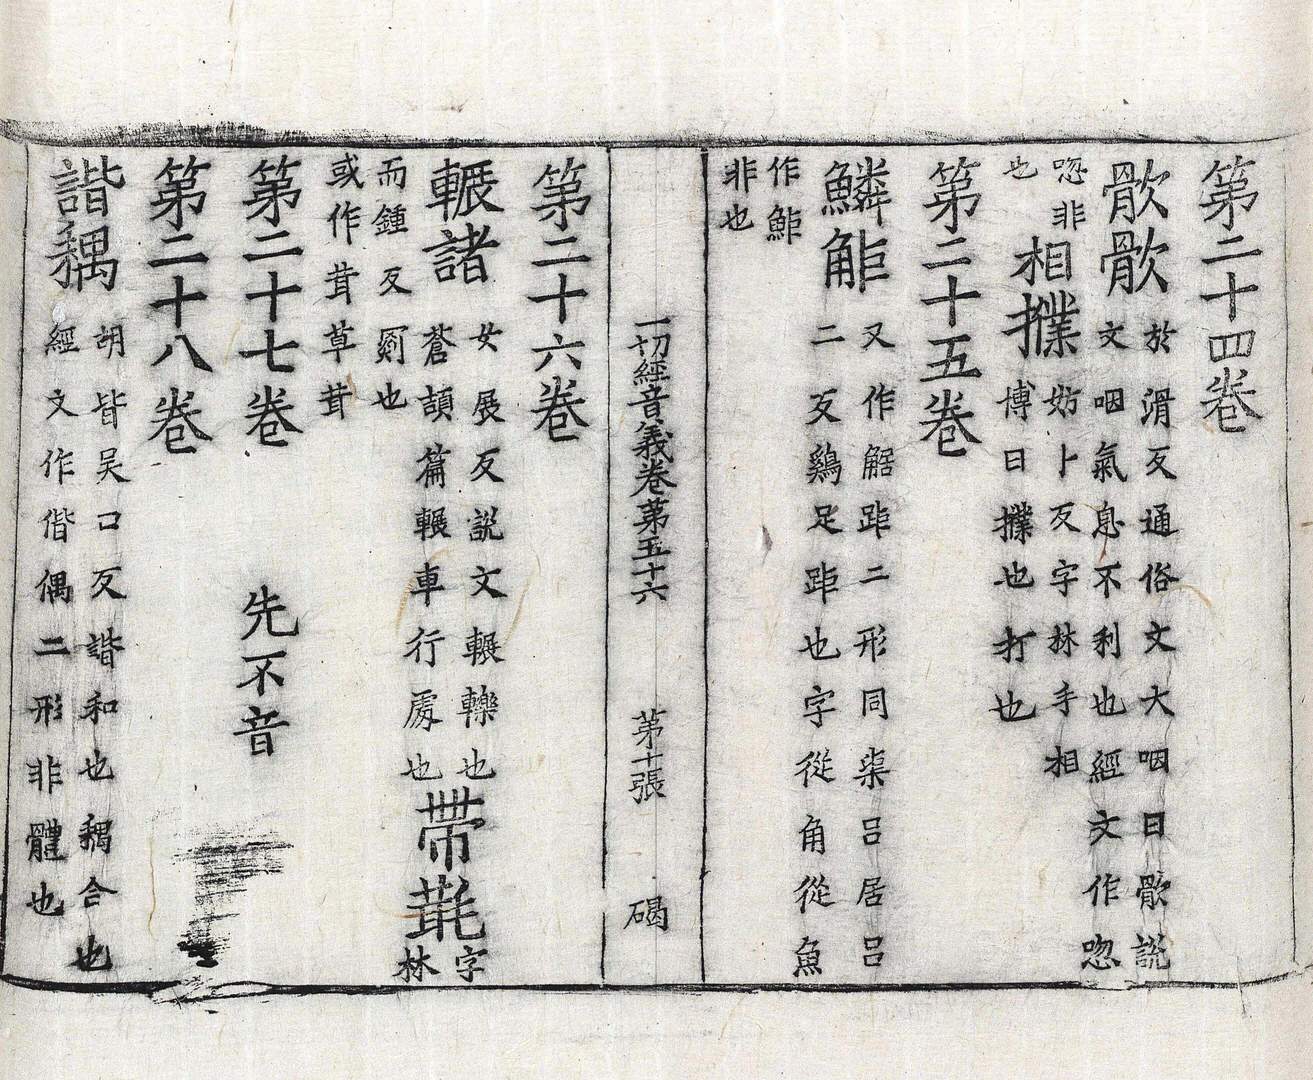 第二十四卷
歍歍
於滑反通俗文大咽曰歍説
文咽氣息不利也經文作唿
唿非
也
相撲
妨卜反字林手相
博曰撲也打也
第二十五卷
鱗䶥
又作䚚距二形同渠呂居呂
二反雞足距也字從角從魚
作䱟
非也
一切經音義卷第五十六 第十張 碣
第二十六卷
輾諸
女展反説文輾轢也
蒼頡篇輾車行處也
帶毦
字
林
而鍾反罽也
或作茸草茸
第二十七卷 先不音
第二十八卷
諧耦
胡皆吴口反諧和也耦合也
經文作偕偶二形非體也